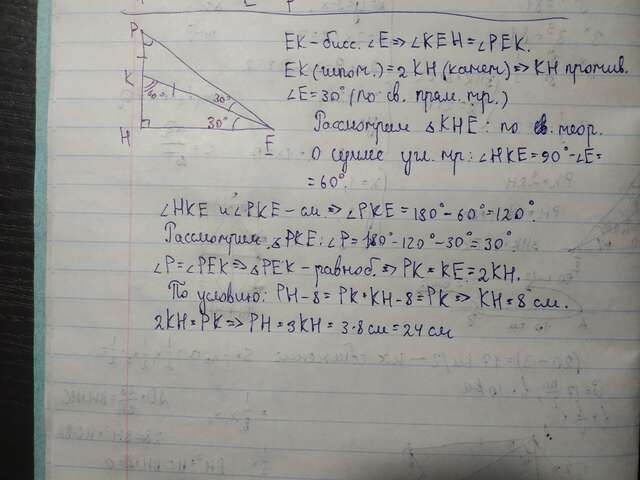 P
K
H
E
60°
30°
30°
EK - бисс. ∠E => ∠KEH = ∠PEK.
EK (гипот.) = 2KH (катет) => KH против.
∠E = 30° (по св. прям. тр.)
Рассмотрим △KHE: по св. теор.
о сумме угл. тр.: ∠HKE = 90° - ∠E =
= 60°.
∠HKE и ∠PKE - см. => ∠PKE = 180° - 60° = 120°.
Рассмотрим △PKE: ∠P = 180° - 120° - 30° = 30°.
∠P = ∠PEK => △PEK - равноб. => PK = KE = 2KH.
По условию: PH - 8 = PK + KH - 8 = PK => KH = 8 см.
2KH = PK => PH = 3KH = 3·8см = 24 см